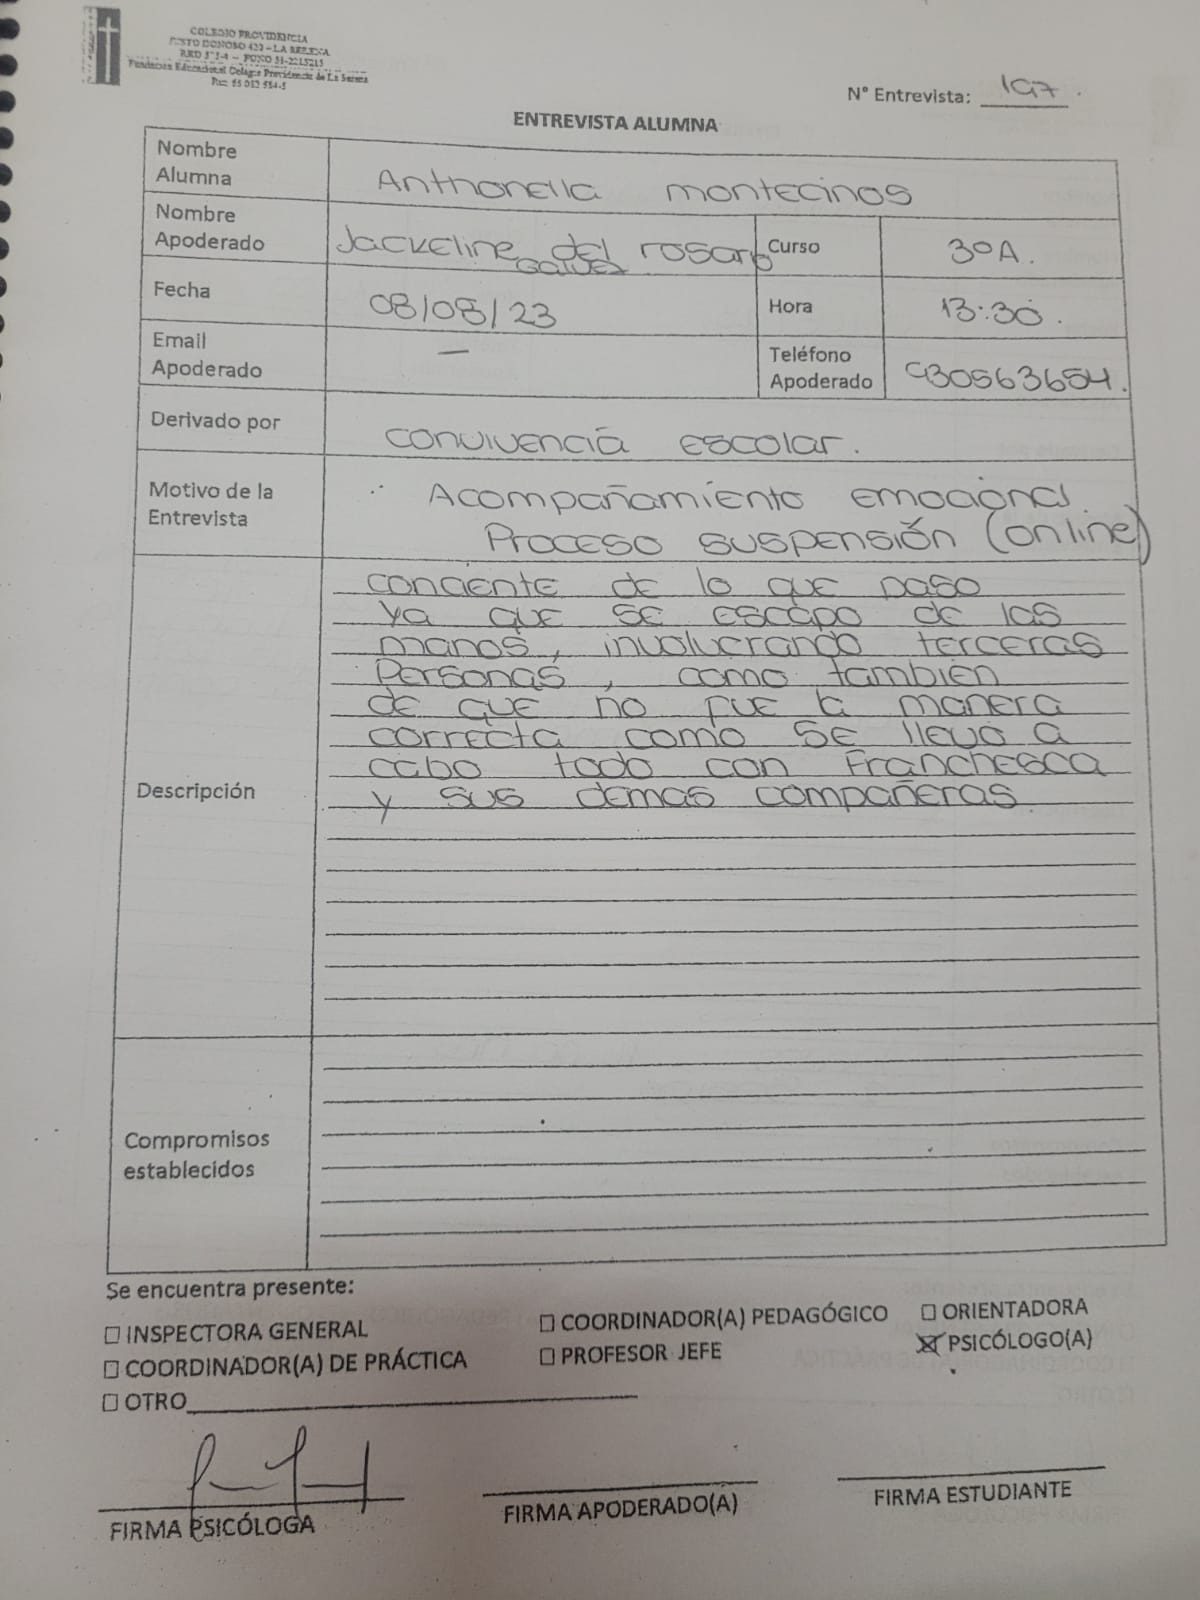 COLEGIO PROVIDENCIA
JUSTO DONOSO 420 – LA SERENA
Fundación Educacional Colegio Providencia de La Serena
N° Entrevista: 197.
ENTREVISTA ALUMNA
Nombre Alumna Anthonella montecinos
Nombre Apoderado Jackeline del rosario Galvez Curso 3ºA.
Fecha 08/08/23 Hora 13:30.
Email Apoderado — Teléfono Apoderado 930563654.
Derivado por convivencia escolar.
Motivo de la Entrevista Acompañamiento emocional.
Proceso suspensión (online)
Descripción
conciente de lo que paso
ya que se escapo de las
manos, involucrando terceras
Personas, como también
de que no fue la manera
correcta como se llevó a
cabo todo con Franchesca
y sus demas compañeras.
Compromisos establecidos
Se encuentra presente:
☐ INSPECTORA GENERAL ☐ COORDINADOR(A) PEDAGÓGICO ☐ ORIENTADORA
☐ COORDINADOR(A) DE PRÁCTICA ☐ PROFESOR JEFE ☒ PSICÓLOGO(A)
☐ OTRO
FIRMA PSICÓLOGA FIRMA APODERADO(A) FIRMA ESTUDIANTE